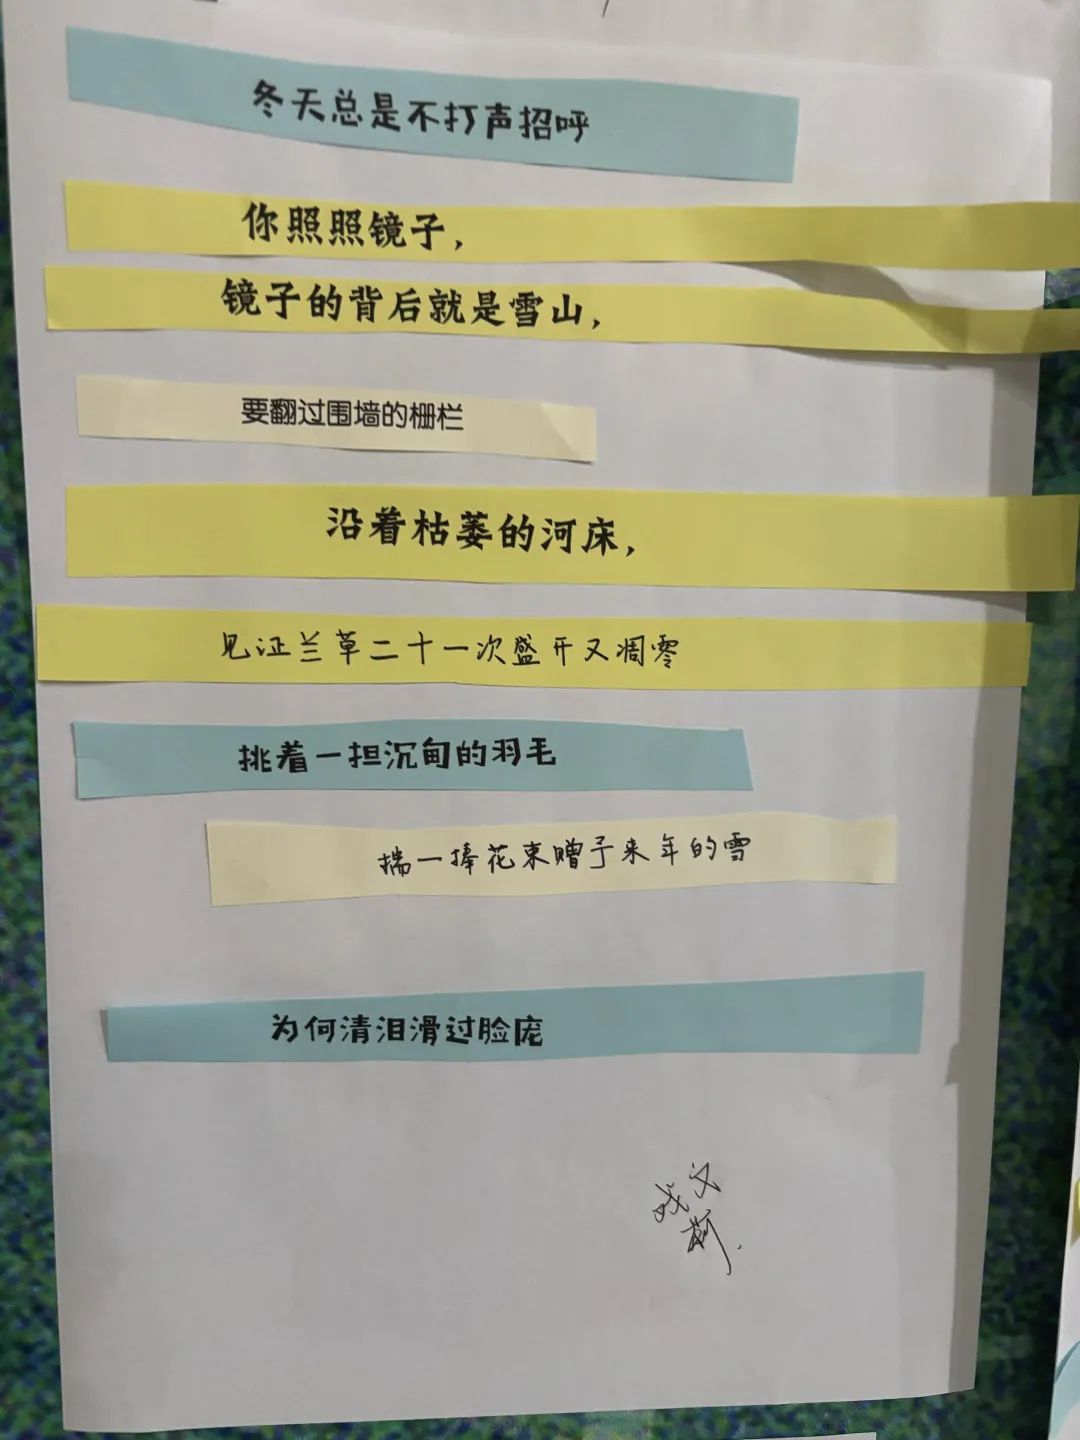 冬天总是不打声招呼
你照照镜子，
镜子的背后就是雪山，
要翻过围墙的栅栏
沿着枯萎的河床，
见证兰草二十一次盛开又凋零
挑着一担沉甸的羽毛
揣一捧花束赠予来年的雪
为何清泪滑过脸庞